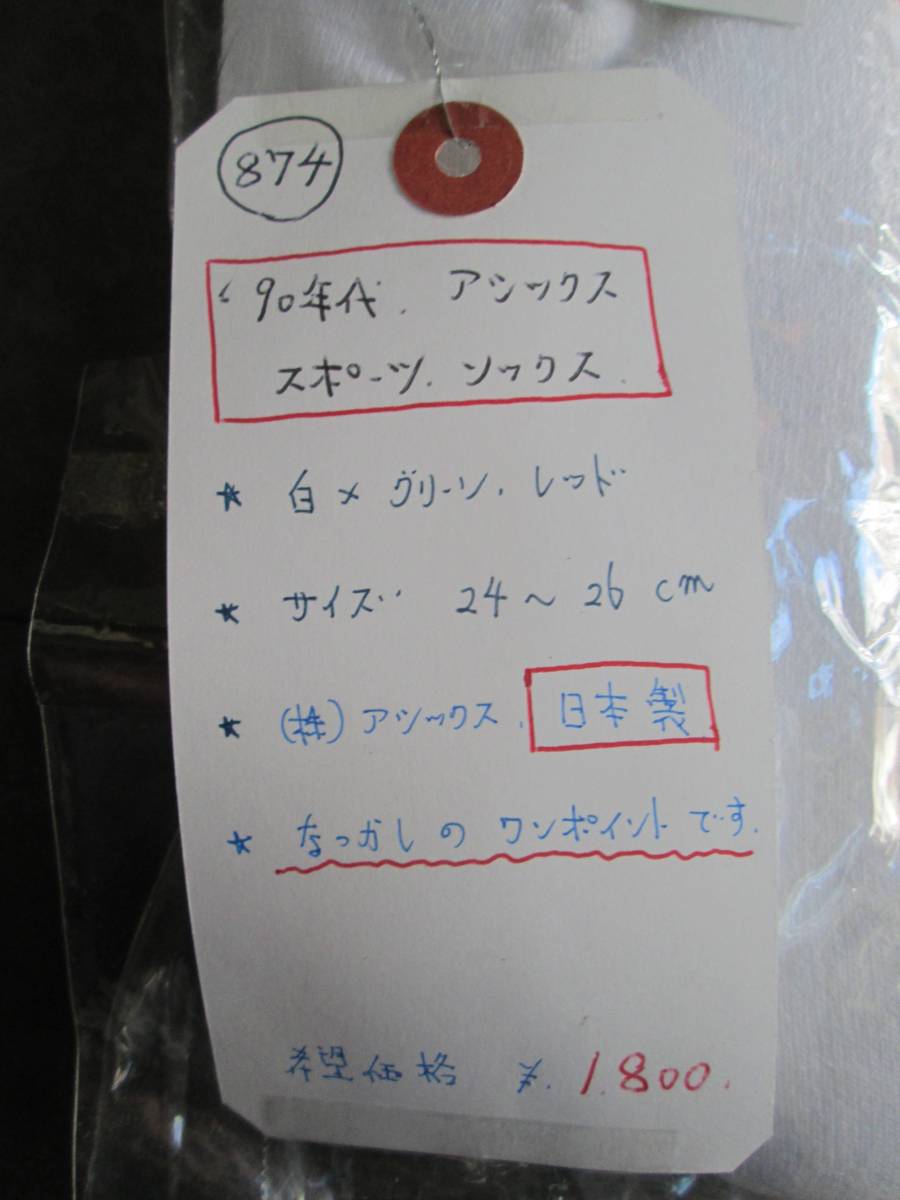 874
'90年代. アシックス
スポーツ. ソックス.
★ 白×グリーン. レッド
★ サイズ‥ 24～26cm
★ (株)アシックス. 日本製
★ なつかしのワンポイントです.
希望価格 ¥.1.800.